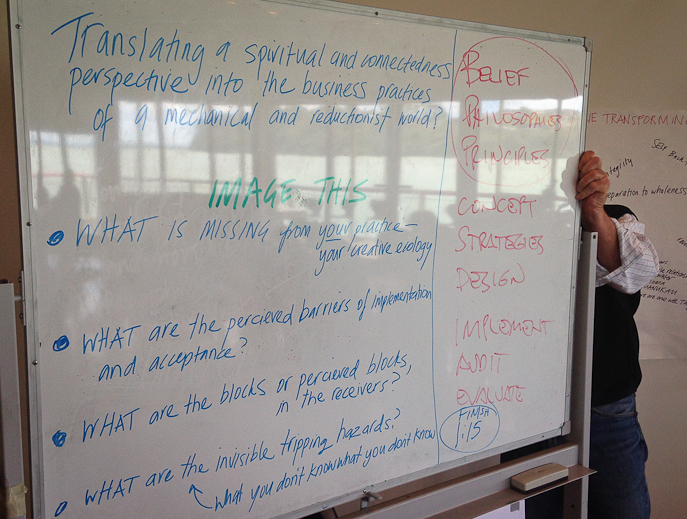 Translating a spiritual and connectedness
perspective into the business practices
of a mechanical and reductionist world?
IMAGE THIS
WHAT IS MISSING from your practice –
your creative ecology
WHAT are the percieved barriers of implementation
and acceptance?
WHAT are the blocks or percieved blocks,
in the receivers?
WHAT are the invisible tripping hazards?
what you don't know what you don't know
BELIEF
PHILOSOPHIES
PRINCIPLES
CONCEPT
STRATEGIES
DESIGN
IMPLEMENT
AUDIT
EVALUATE
FINISH
1:15
TRANSFORMIN
SELF
to wholeness